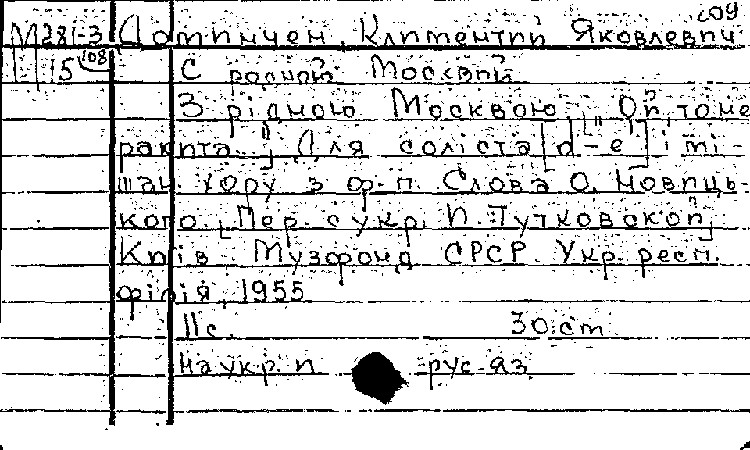 209
М281-3 Доминчен, Климентий Яковлевич
15 (108 С родной Москвой
З рідною Москвою. "Ой, томе
ракита..." Для соліста [d-e] і мі-
шан. хору з ф-п. Слова О. Новиць-
кого. [Пер. с укр. И. Тутковской]
Київ Музфонд СРСР. Укр. респ.
філія, 1955
11 с. 30 см
На укр. и рус. яз.